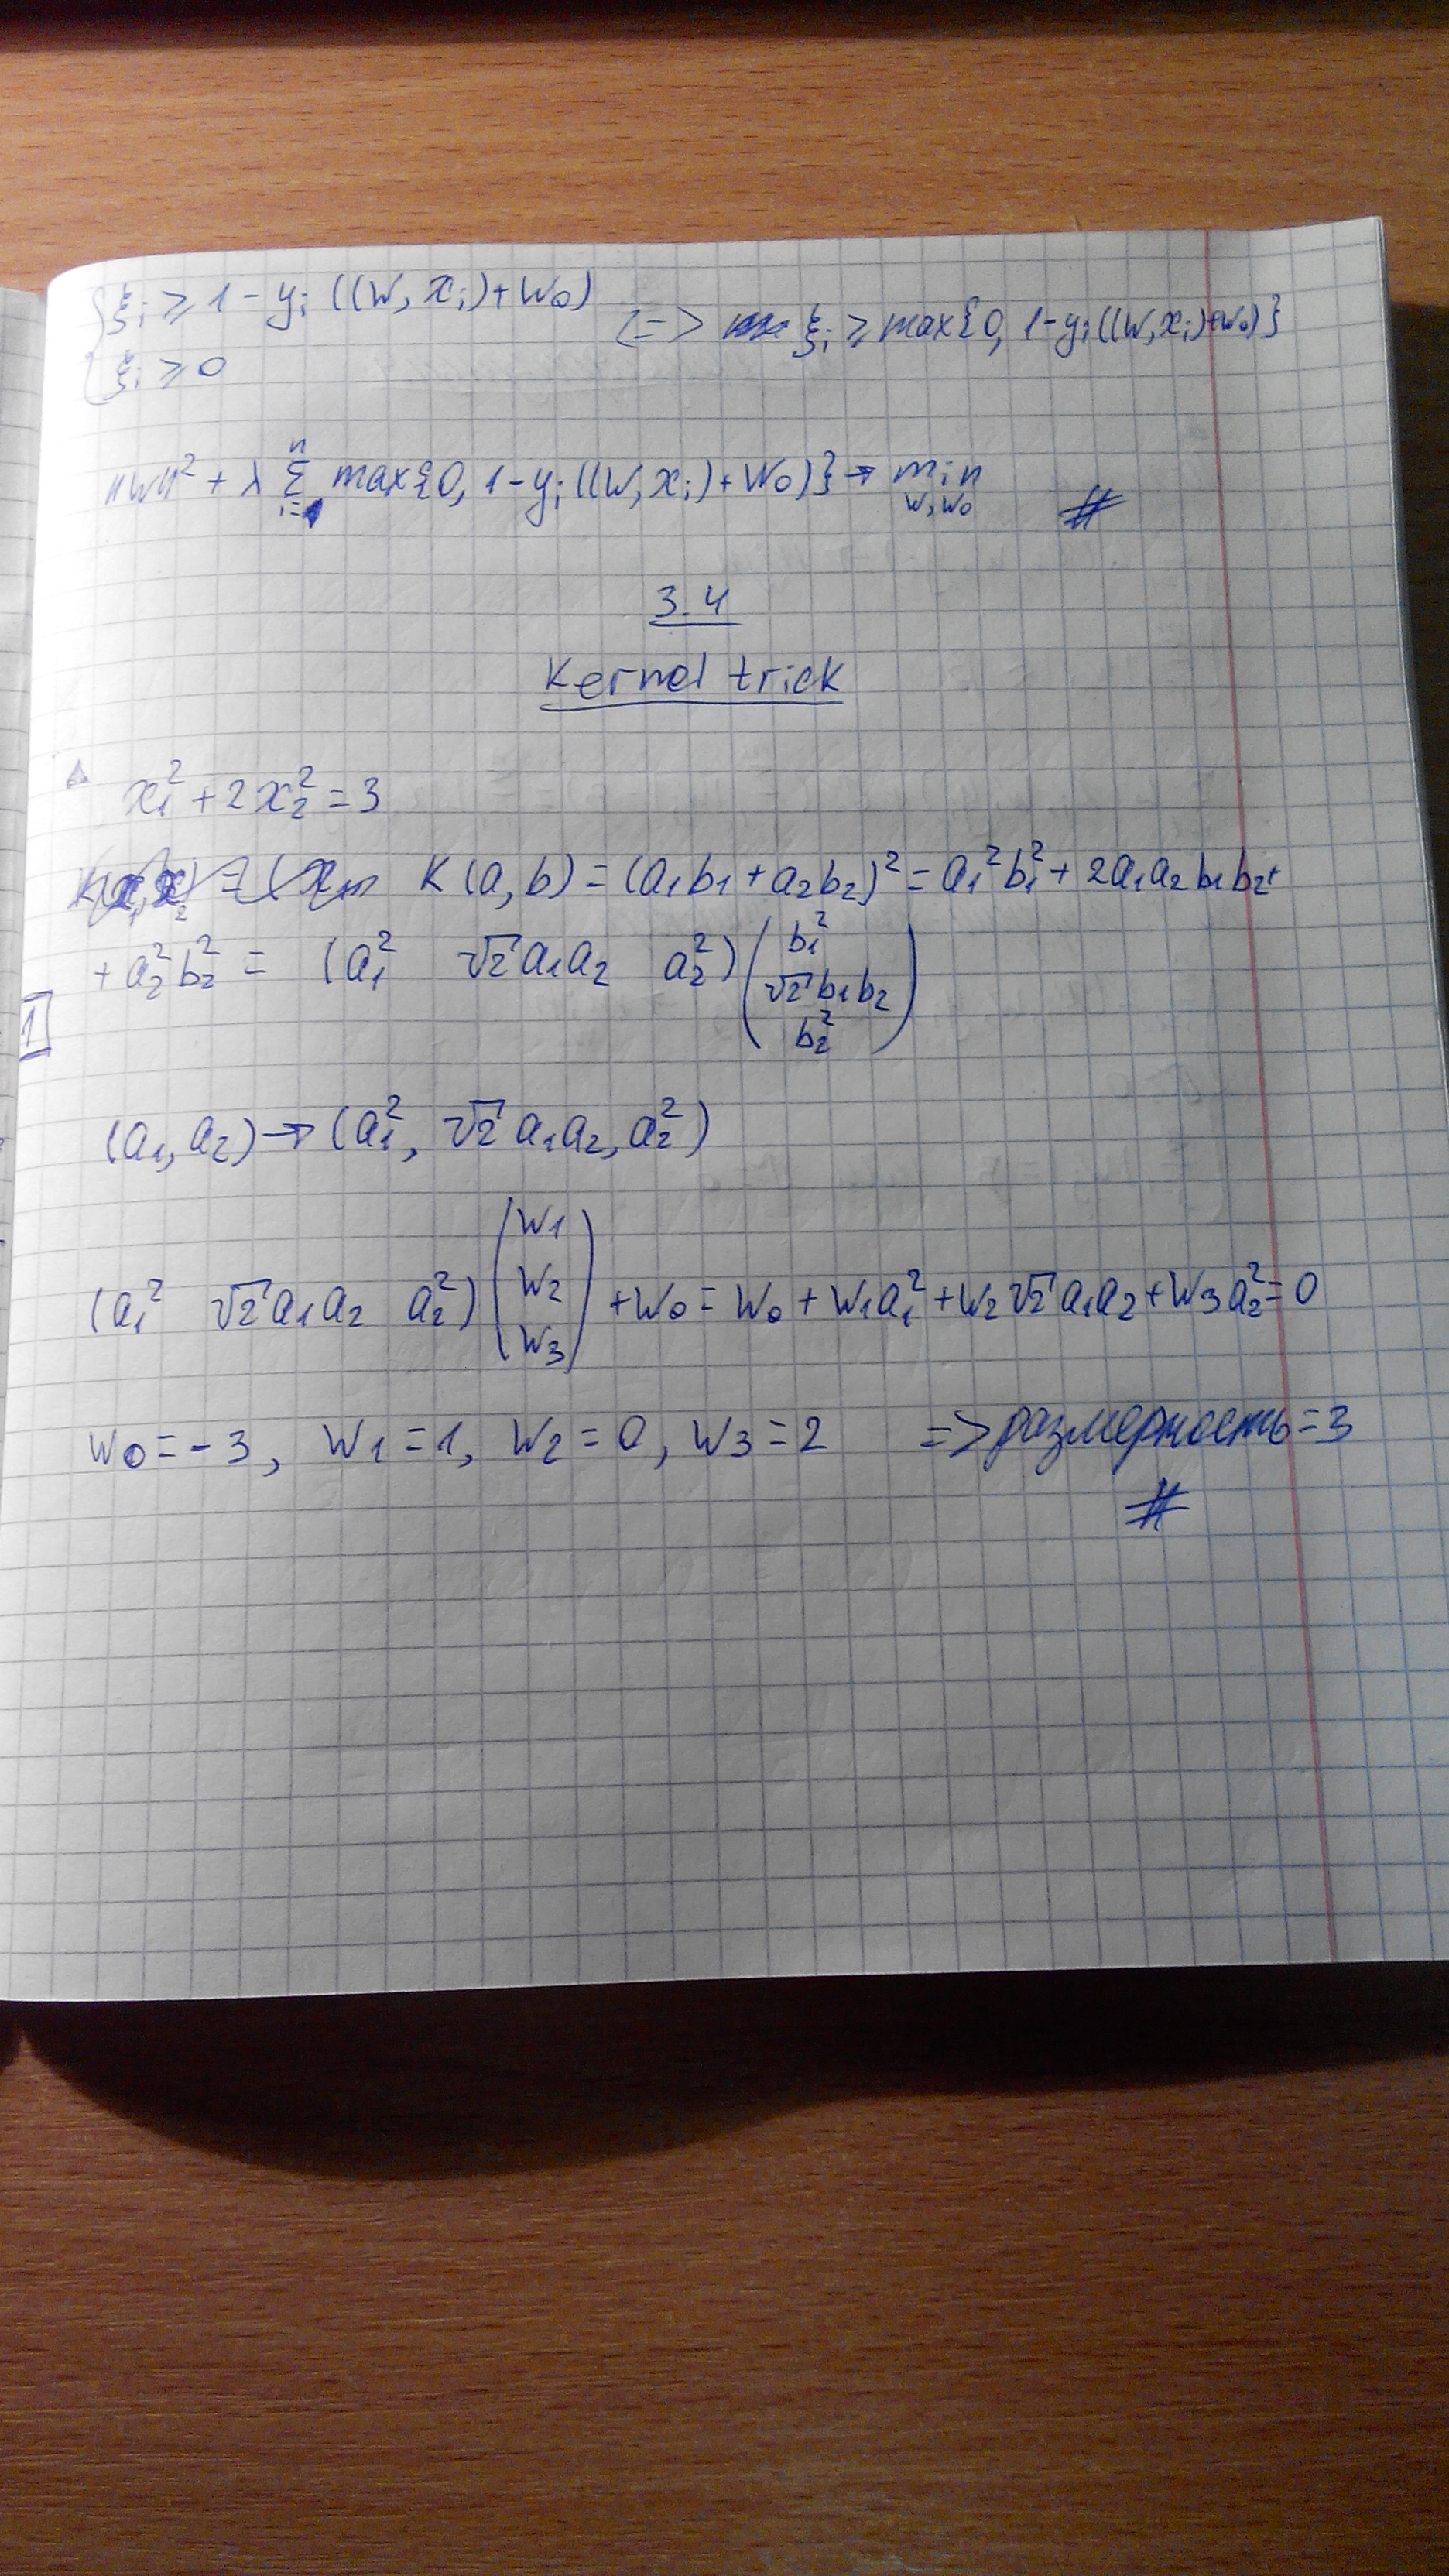 { ξᵢ ≥ 1 - yᵢ ((w, xᵢ) + w₀)
ξᵢ ≥ 0
<=> ξᵢ ≥ max{0, 1 - yᵢ((w, xᵢ) + w₀)}
‖w‖² + λ Σᵢ₌ⁿ max{0, 1 - yᵢ((w, xᵢ) + w₀)} → min w, w₀ #
3.4
Kernel trick
x₁² + 2x₂² = 3
K(a, b) = (a₁b₁ + a₂b₂)² = a₁²b₁² + 2a₁a₂b₁b₂ +
+ a₂²b₂² = (a₁² √2a₁a₂ a₂²) (b₁² √2b₁b₂ b₂²)
1
(a₁, a₂) → (a₁², √2 a₁a₂, a₂²)
(a₁² √2a₁a₂ a₂²) (w₁ w₂ w₃) + w₀ = w₀ + w₁a₁² + w₂√2a₁a₂ + w₃a₂² = 0
w₀ = -3, w₁ = 1, w₂ = 0, w₃ = 2 => размерность = 3
#